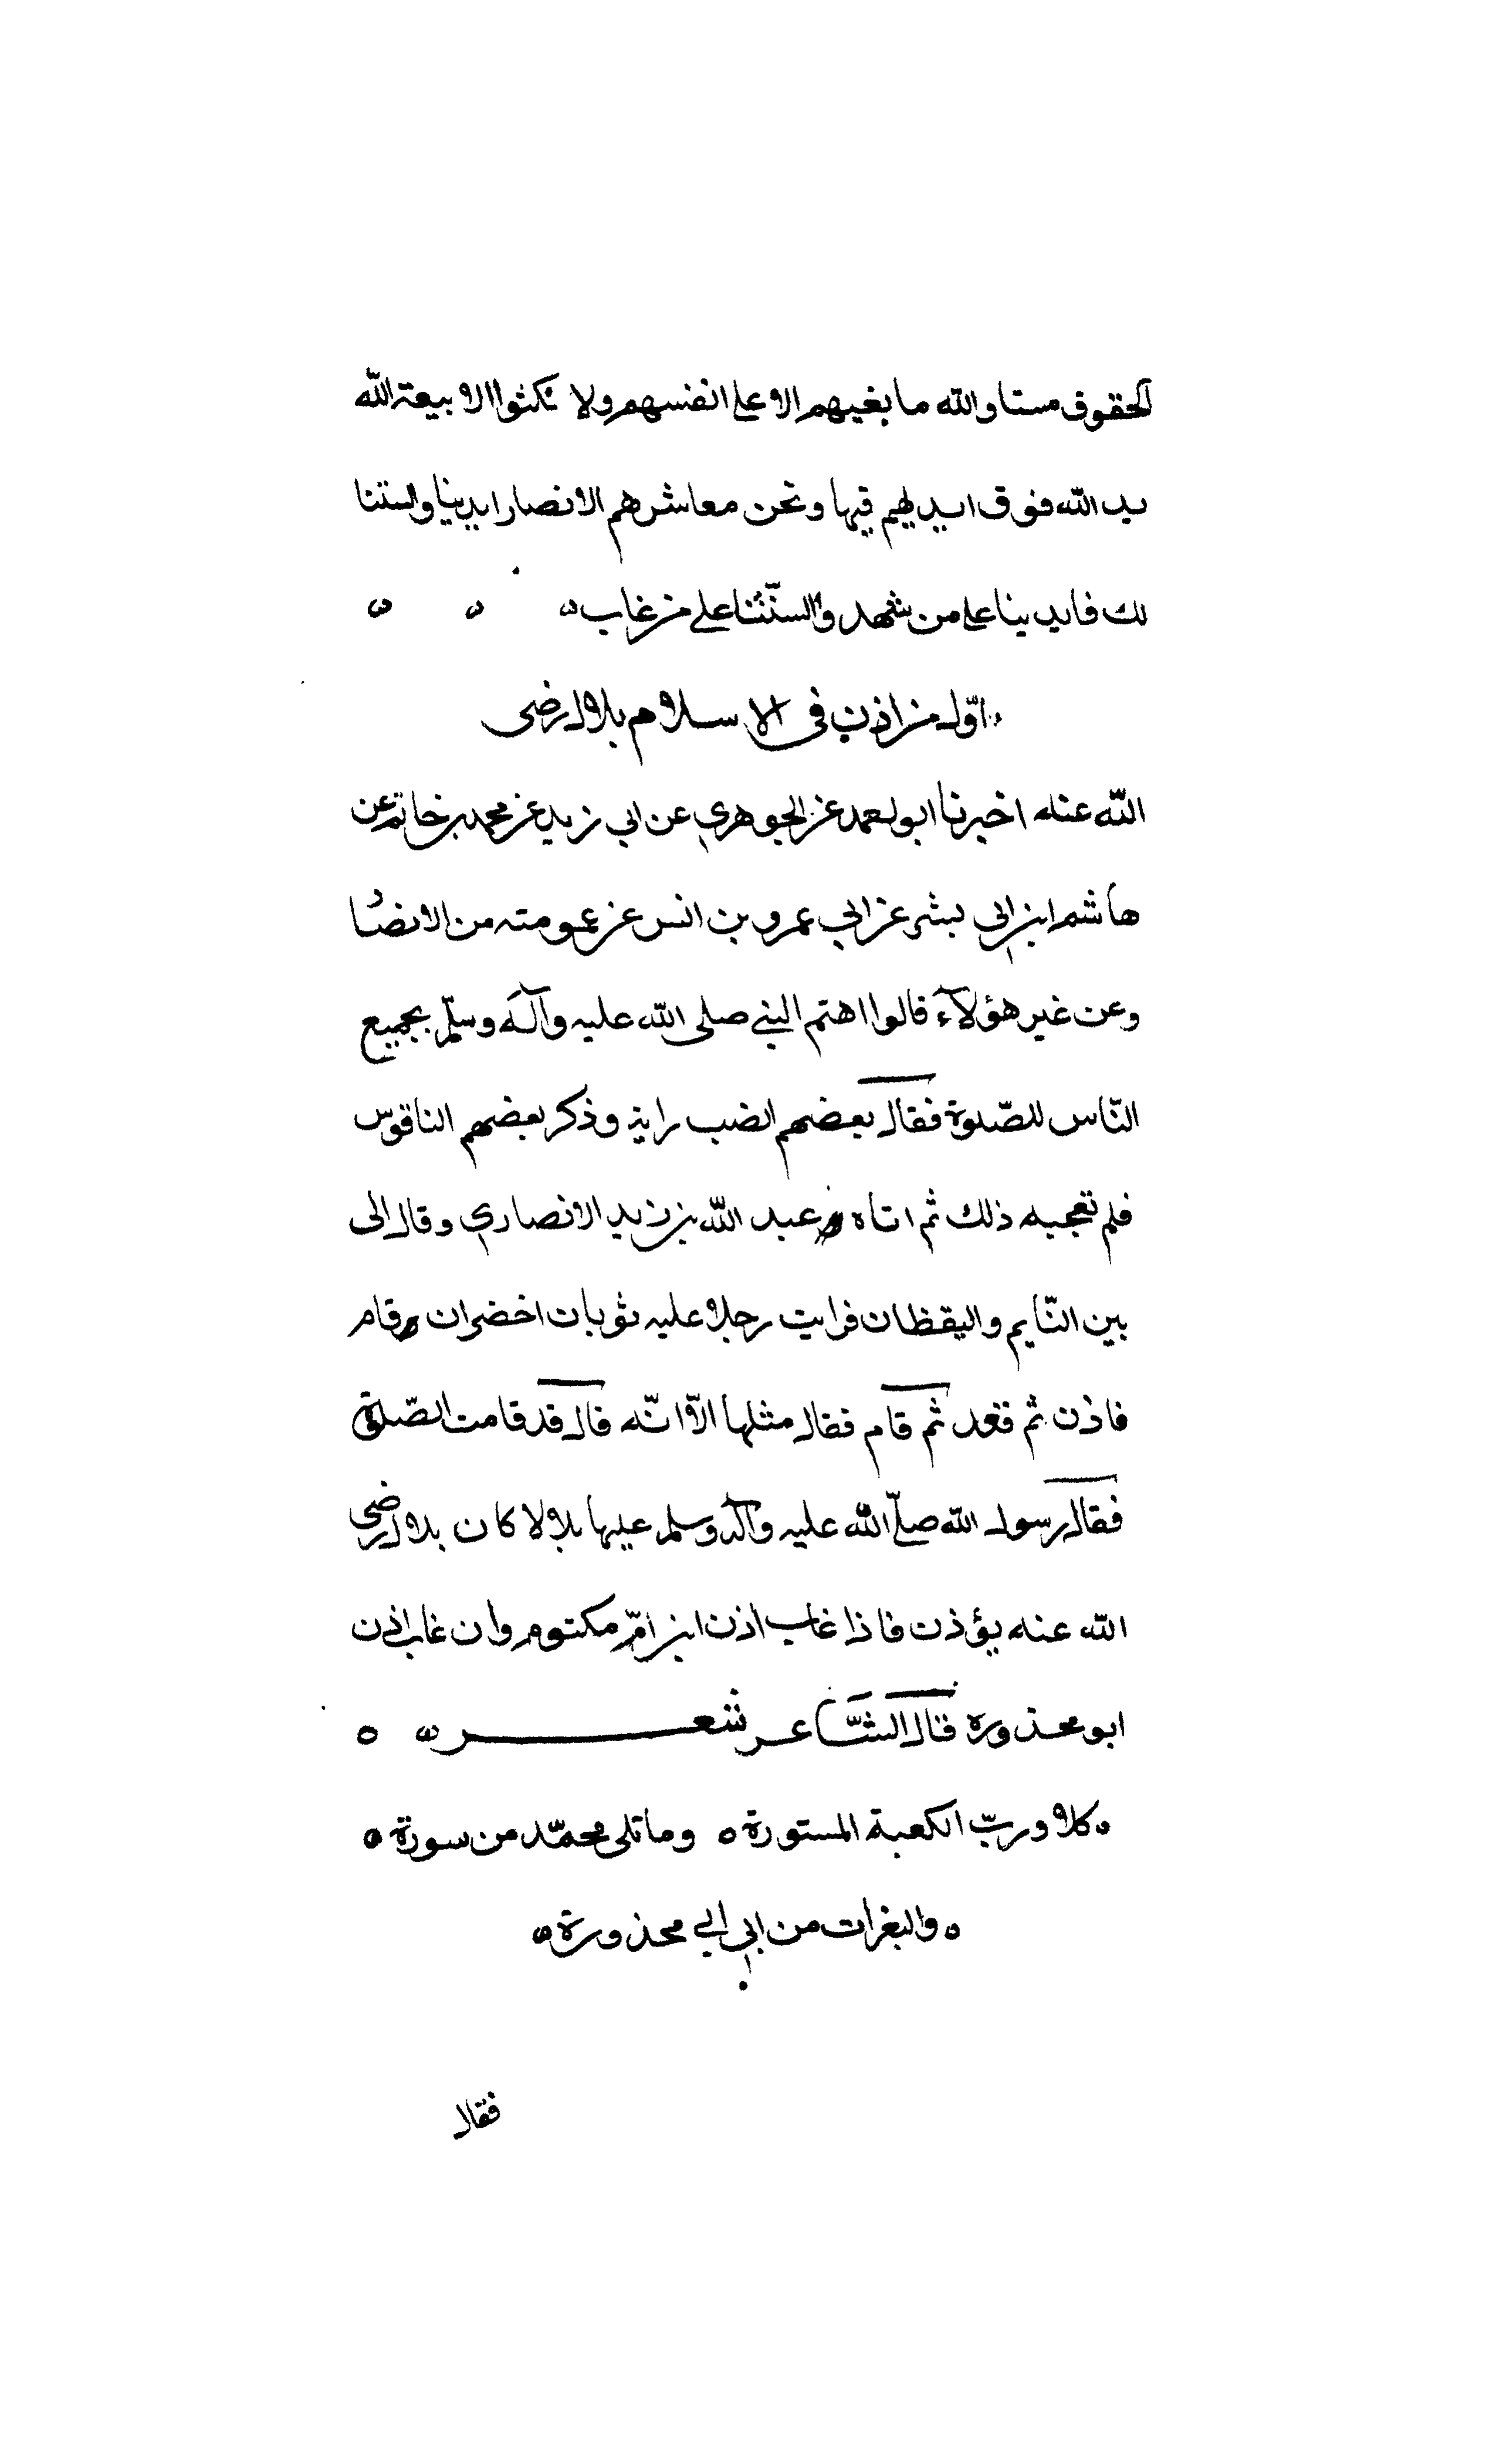 الحقوق مستا والله ما بغيهم الا على انفسهم ولا نكثوا الا بيعة الله
يد الله فوق ايديهم فيها ونحن معاشرهم الانصار ايدينا والستنا
لك فايدينا على من شهد والسنتنا على من غاب ه ه ه
اول من اذن فى الاسلام بلال رضى
الله عنه اخبرنا ابو احمد عن الجوهري عن ابي زيد عن محمد بن حاتم عن
هاشم ابن ابي بشر عن ابي عمرو بن انس عن عمومته من الانصا
وعن غير هؤلآء قالوا اهتم النبي صلى الله عليه وآله وسلّم بجميع
النّاس للصّلوة فقال بعضهم انصب راية وذكر بعضهم الناقوس
فلم تعجبه ذلك ثم اتاه عبد الله بن زيد الانصاري وقال انى
بين النّايم واليقظان فرايت رجلا عليه ثوبان اخضران قام
فاذن ثم قعد ثم قام فقال مثلها الّا انّه قال قد قامت الصّلوة
فقال رسول الله صلّى الله عليه وآله وسلم عليها بلالا كان بلال رضى
الله عنه يؤذن فاذا غاب اذن ابن امّ مكتوم وان غاب اذن
ابو محذوره قال الشّاعر شعر ه ه
ه كلا وربّ الكعبة المستورة ه وما تلى محمّد من سورة ه
ه والنغرات من ابي ابي محذورة ه
فقال